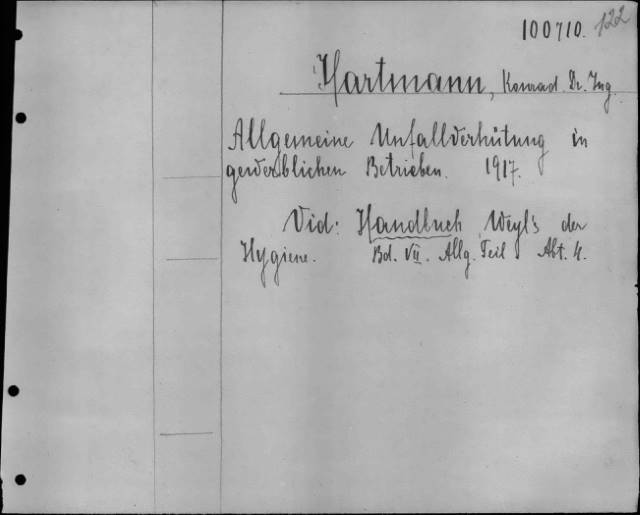 100710. 122
Hartmann, Konrad. Dr. Ing.
Allgemeine Unfallverhütung in
gewerblichen Betrieben. 1917.
Vid: Handbuch Weyl's der
Hygiene. Bd. VII. Allg. Teil Abt. 4.